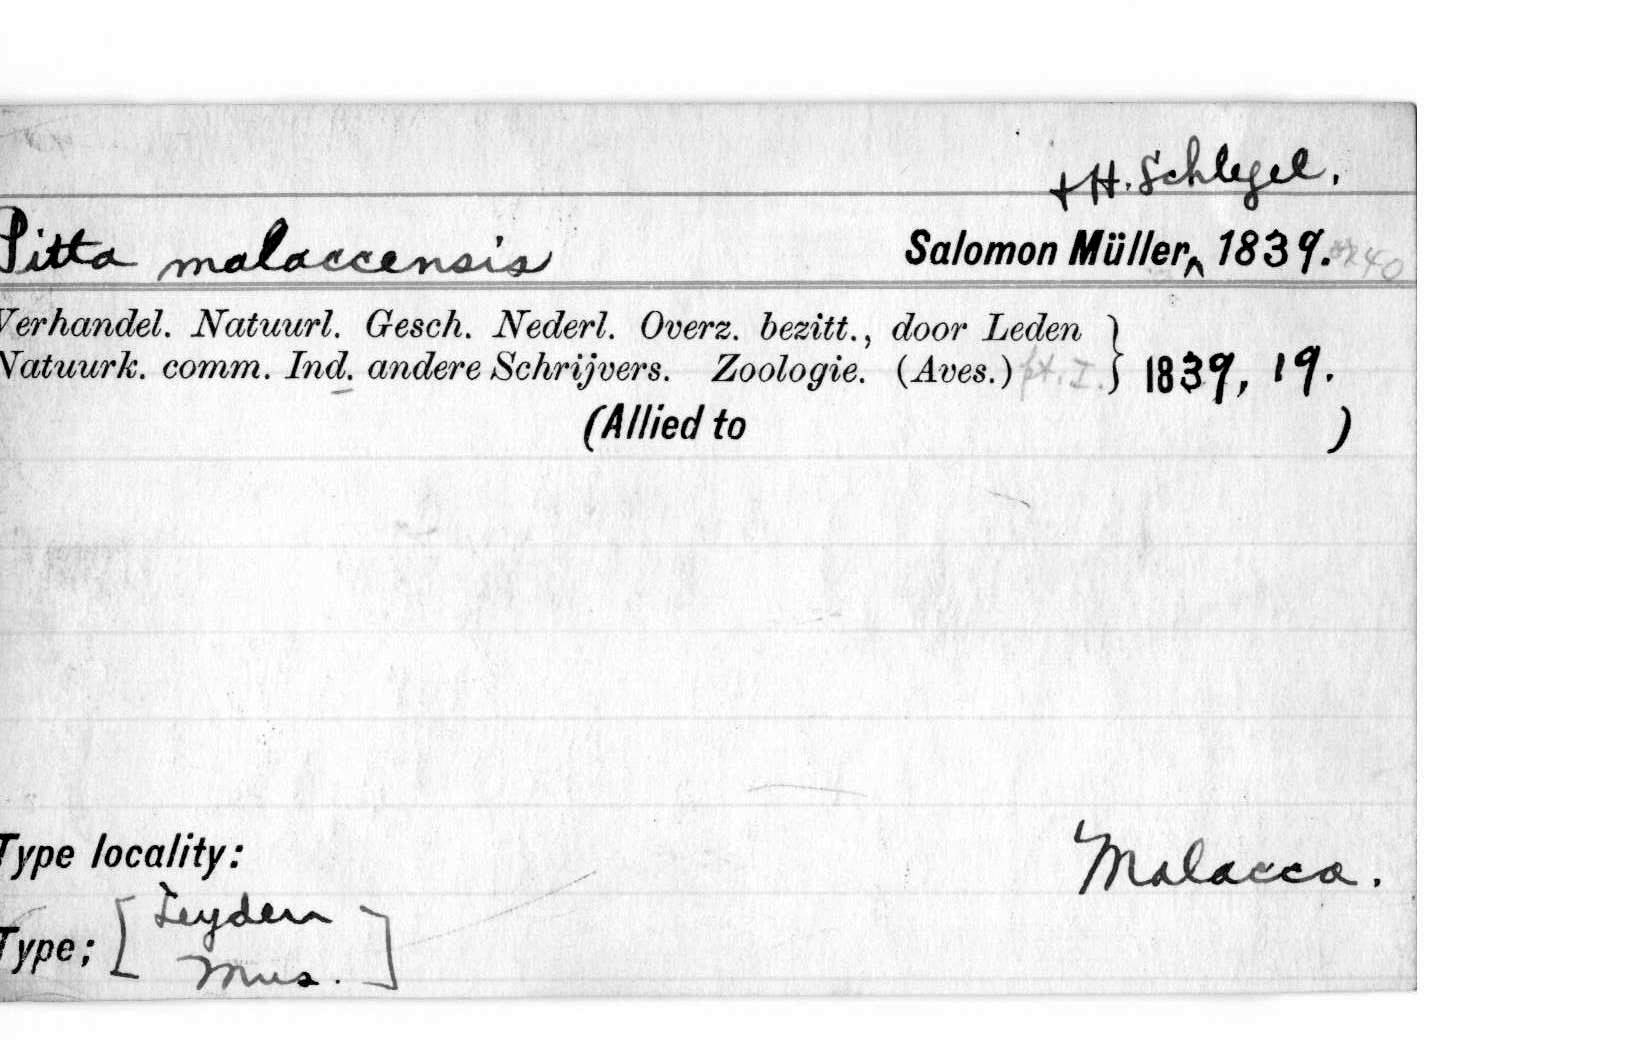 + H. Schlegel.
Pitta malaccensis Salomon Müller, ^ 1839. or 40
Verhandel. Natuurl. Gesch. Nederl. Overz. bezitt., door Leden
Natuurk. comm. Ind. andere Schrijvers. Zoologie. (Aves.) pt. I. } 1839, 19.
(Allied to )
Type locality: Malacca.
Type; [Leyden
Mus.]